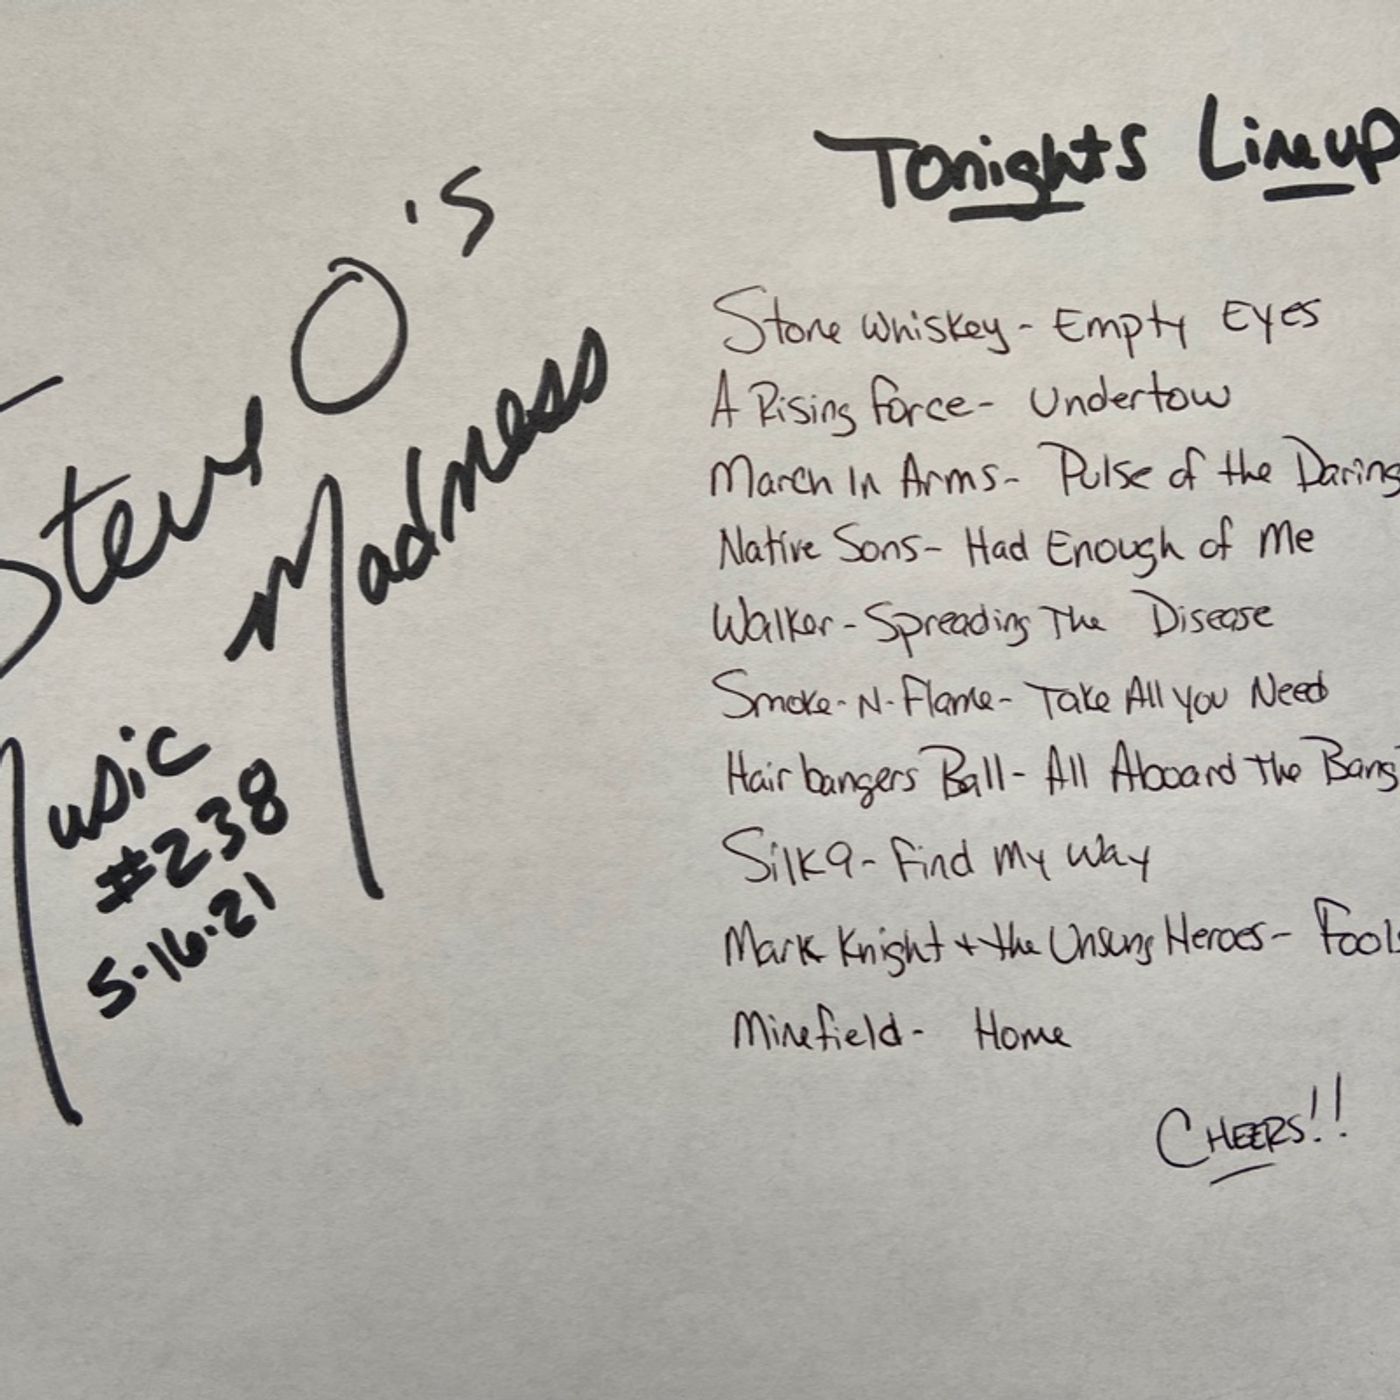 Steve O's
Madness
Music
#238
5.16.21
Tonights Lineup
Stone Whiskey - Empty Eyes
A Rising Force - Undertow
March In Arms - Pulse of the Daring
Native Sons - Had Enough of Me
Walker - Spreading The Disease
Smoke-N-Flame - Take All You Need
Hairbangers Ball - All Aboard The Bang
Silk9 - Find My Way
Mark Knight + the Unsung Heroes - Fools
Minefield - Home
CHEERS!!